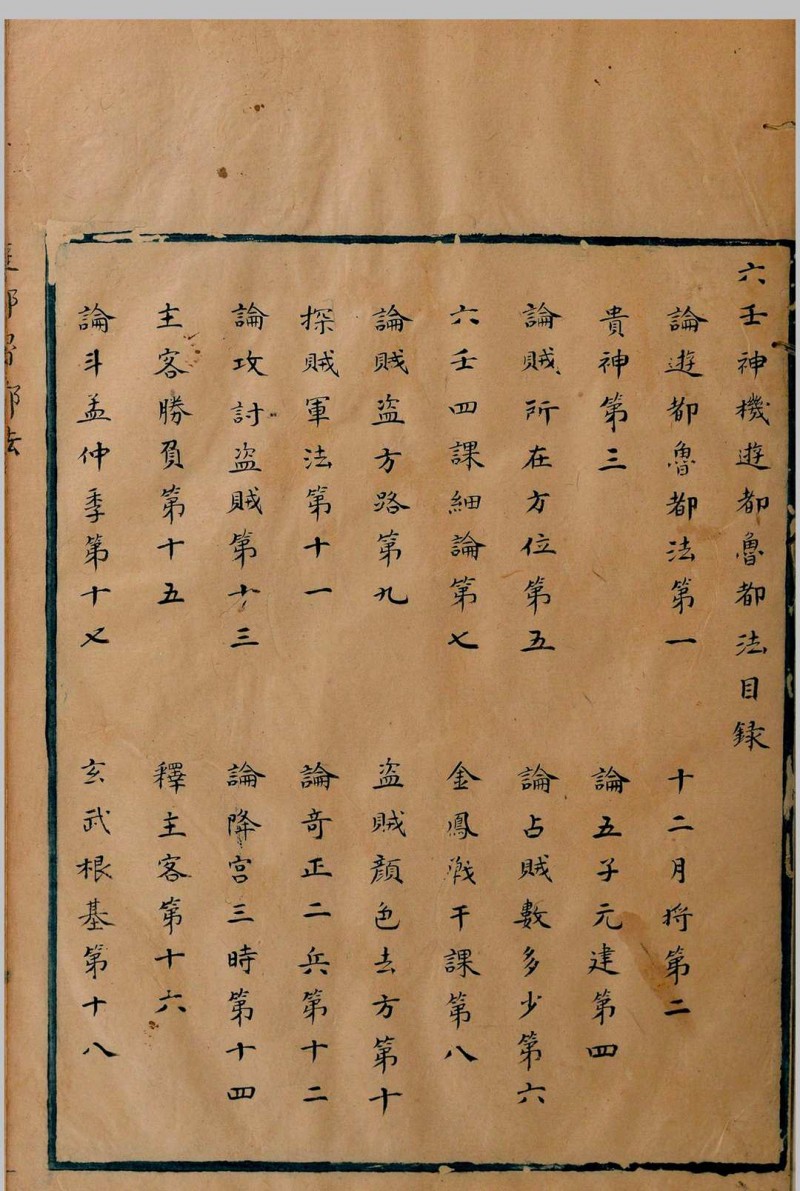 六壬神機遊都魯都法目録
論遊都魯都法第一　十二月将第二
貴神第三　論五子元建第四
論賊所在方位第五　論占賊數多少第六
六壬四課細論第七　金鳳戦干課第八
論賊盗方路第九　盗賊顔色去方第十
探賊軍法第十一　論奇正二兵第十二
論攻討盗賊第十三　論降宫三時第十四
主客勝負第十五　釋主客第十六
論斗孟仲季第十七　玄武根基第十八
都魯都法